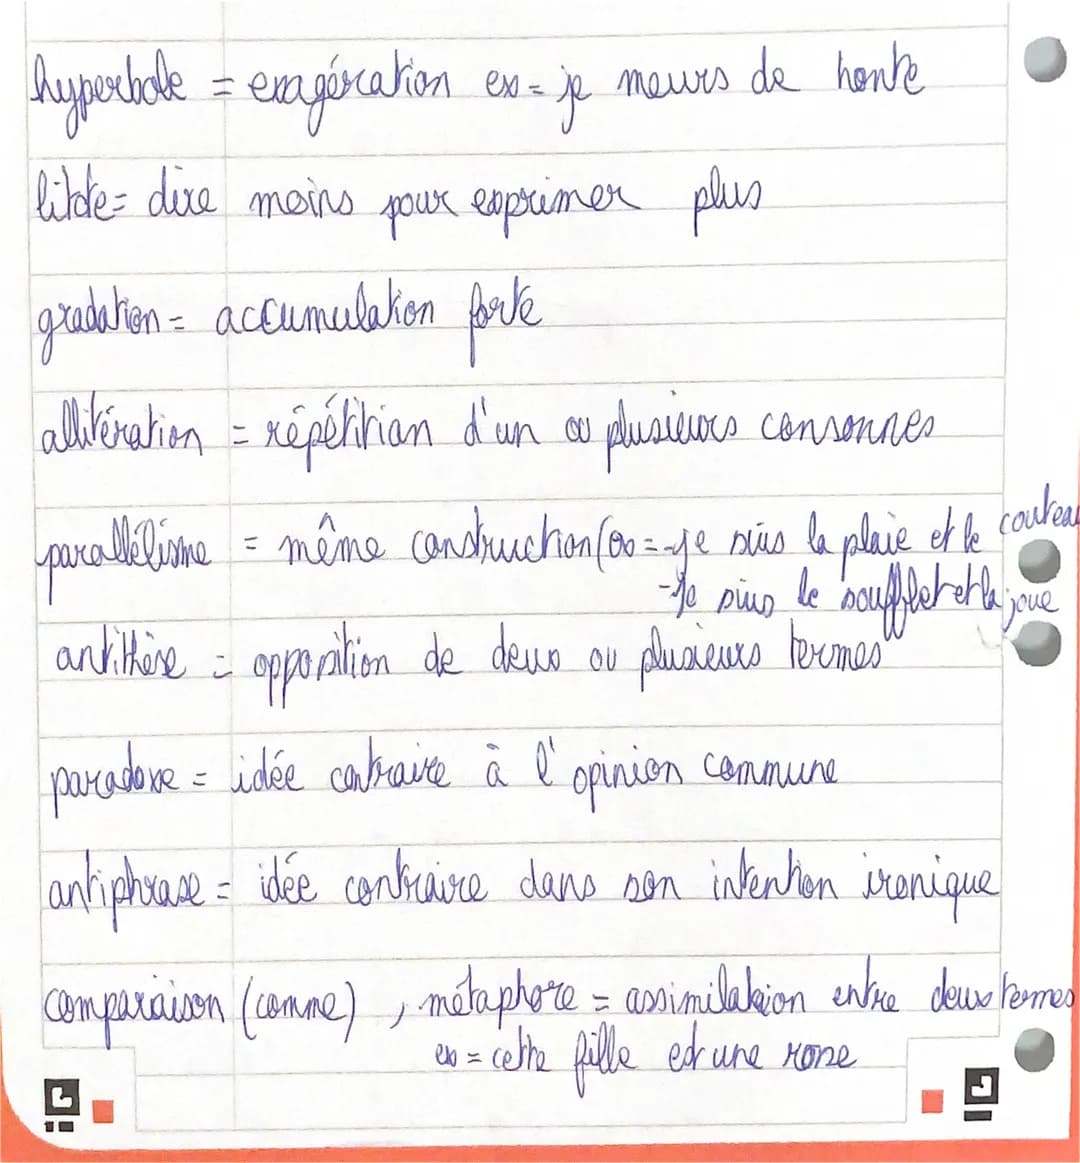 hyperbole = exagércation ex = je meurs de honte
litote = dire moins pour exprimer plus
gradation = accumulation forte
allitération = répétition d'un ou plusieurs consonnes
parallélisme = même construction (ex = - je suis la plaie et le couteau
- Je suis le soufflet et la joue
antithèse = opposition de deux ou plusieurs termes
paradoxe = idée contraire à l'opinion commune
antiphrase = idée contraire dans son intention ironique
comparaison (comme), métaphore = assimilation entre deux termes
ex = cette fille est une rose